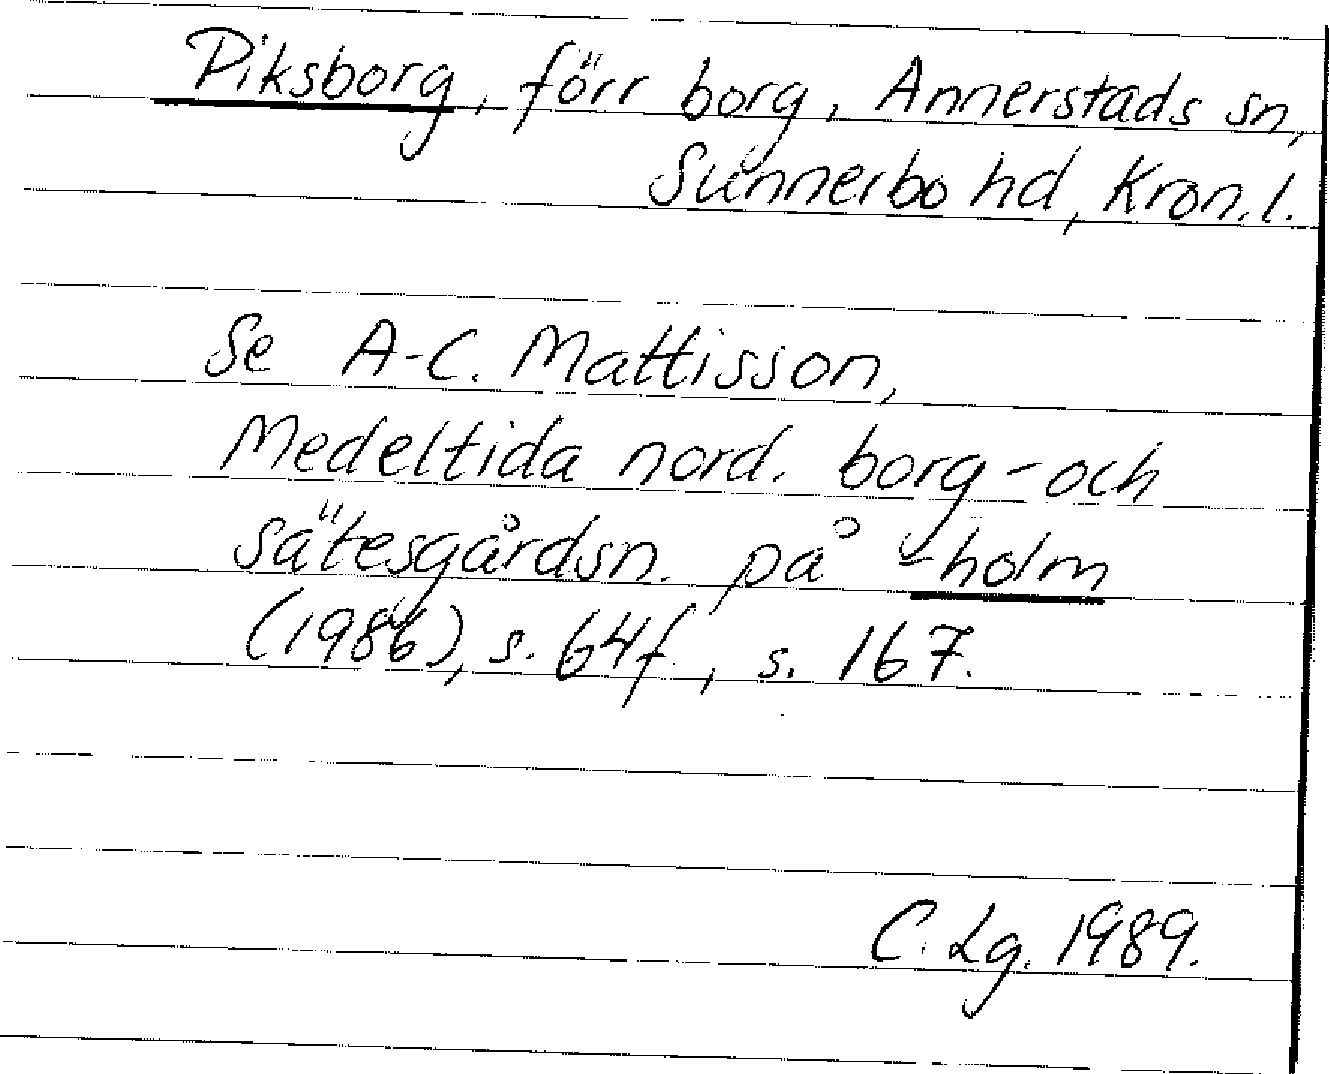 Piksborg, förr borg, Annerstads sn,
Sunnerbo hd, Kron. l.
Se A-C. Mattisson,
Medeltida nord. borg- och
sätesgårdsn. på -holm
(1986), s. 64f., s. 167.
C. Lg. 1989.